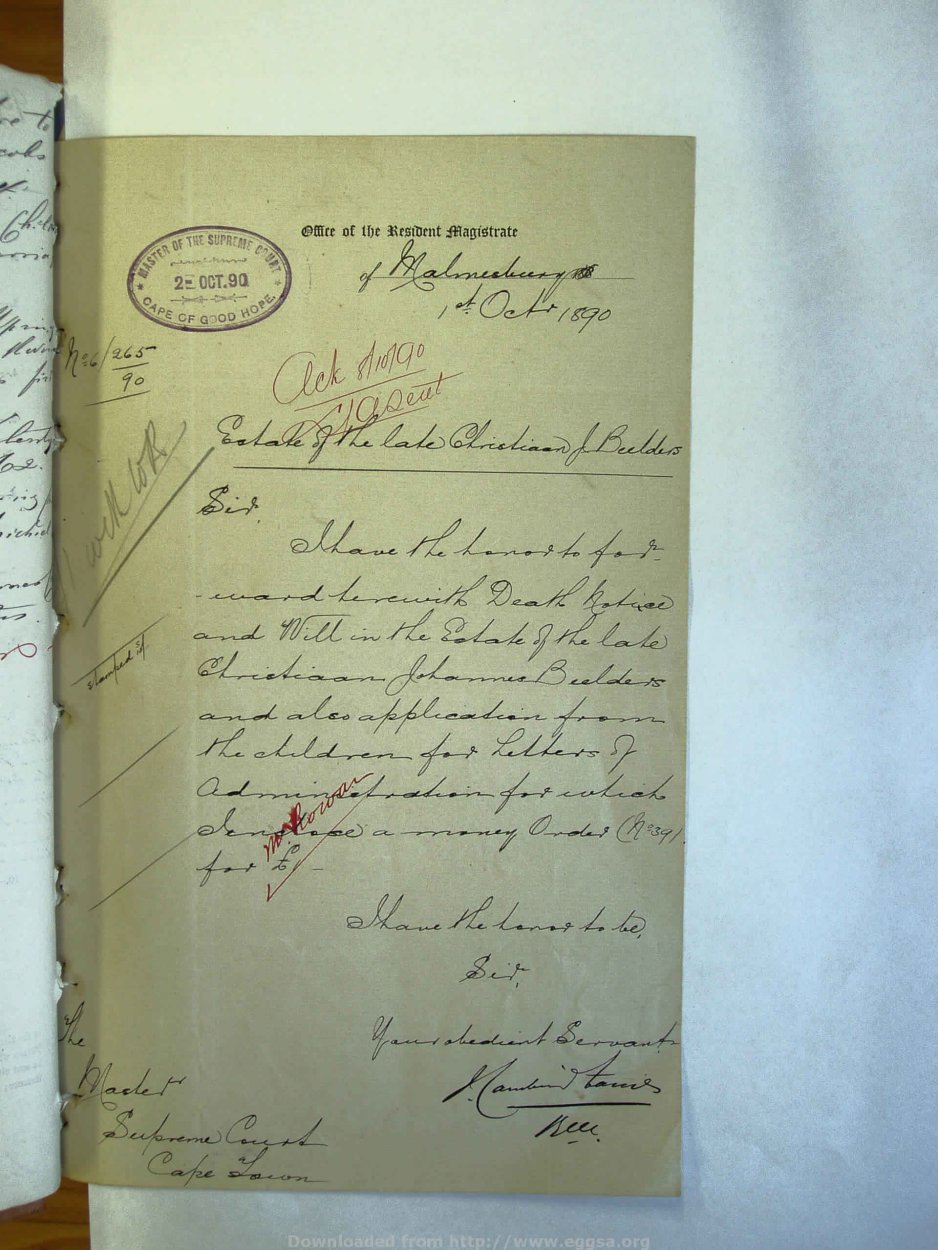 Office of the Resident Magistrate
of Malmesbury
1st Octr 1890
MASTER OF THE SUPREME COURT
2 = OCT. 90
CAPE OF GOOD HOPE
No 6/265
90
Ack 8/10/90
sent
Estate of the late Christiaan J. Beelders
Sir,
I have the honor to for-
-ward herewith Death Notice
and Will in the Estate of the late
Christiaan Johannes Beelders
and also application from
the children for Letters of
Administration for which
I enclose a money Order (No 391
for £
stamped
I have the honor to be,
Sir,
Your obedient Servant
RM.
The
Master
Supreme Court
Cape Town
Downloaded from http://www.eggsa.org